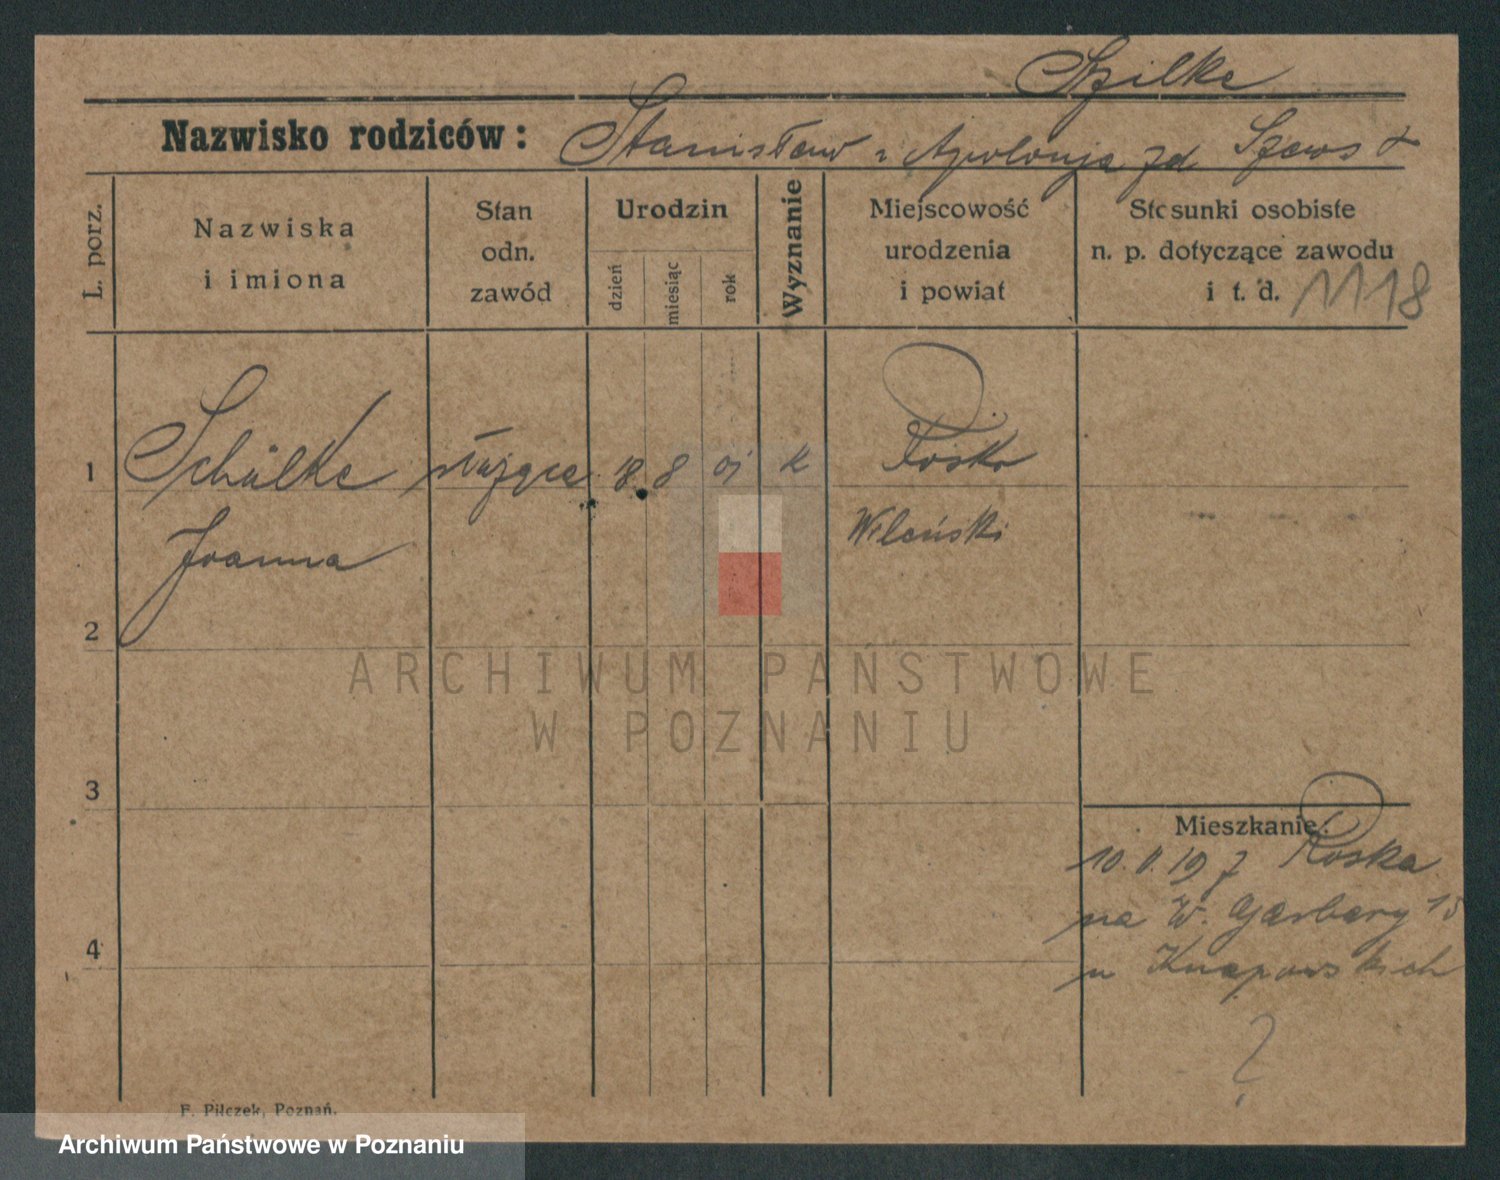 Szilke
Nazwisko rodziców: Stanisław i Apolonja zd
L. porz.
Nazwiska i imiona
Stan odn. zawód
Urodzin
dzień
miesiąc
rok
Wyznanie
Miejscowość urodzenia i powiat
Stosunki osobiste n. p. dotyczące zawodu i t. d.
1118
1
Schülke służąca 18. 8 01 k Rosko
Joanna
Wileński
2
ARCHIWUM PAŃSTWOWE
W POZNANIU
3
Mieszkanie:
10. II. 19 z Roska
na W. Garbary 15
u Knapowskich
4
?
F. Pilczek, Poznań.
Archiwum Państwowe w Poznaniu